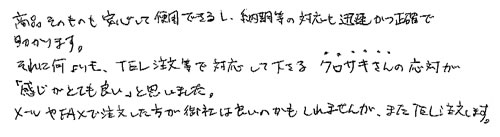 商品そのものも安心して使用できるし、納期等の対応も迅速かつ正確で
助かります。
それに何よりも、TEL注文等で対応して下さるクロサキさんの応対が
「感じがとても良い」と思いました。
メールやFAXで注文した方が御社は良いのかもしれませんが、またTEL注文します。